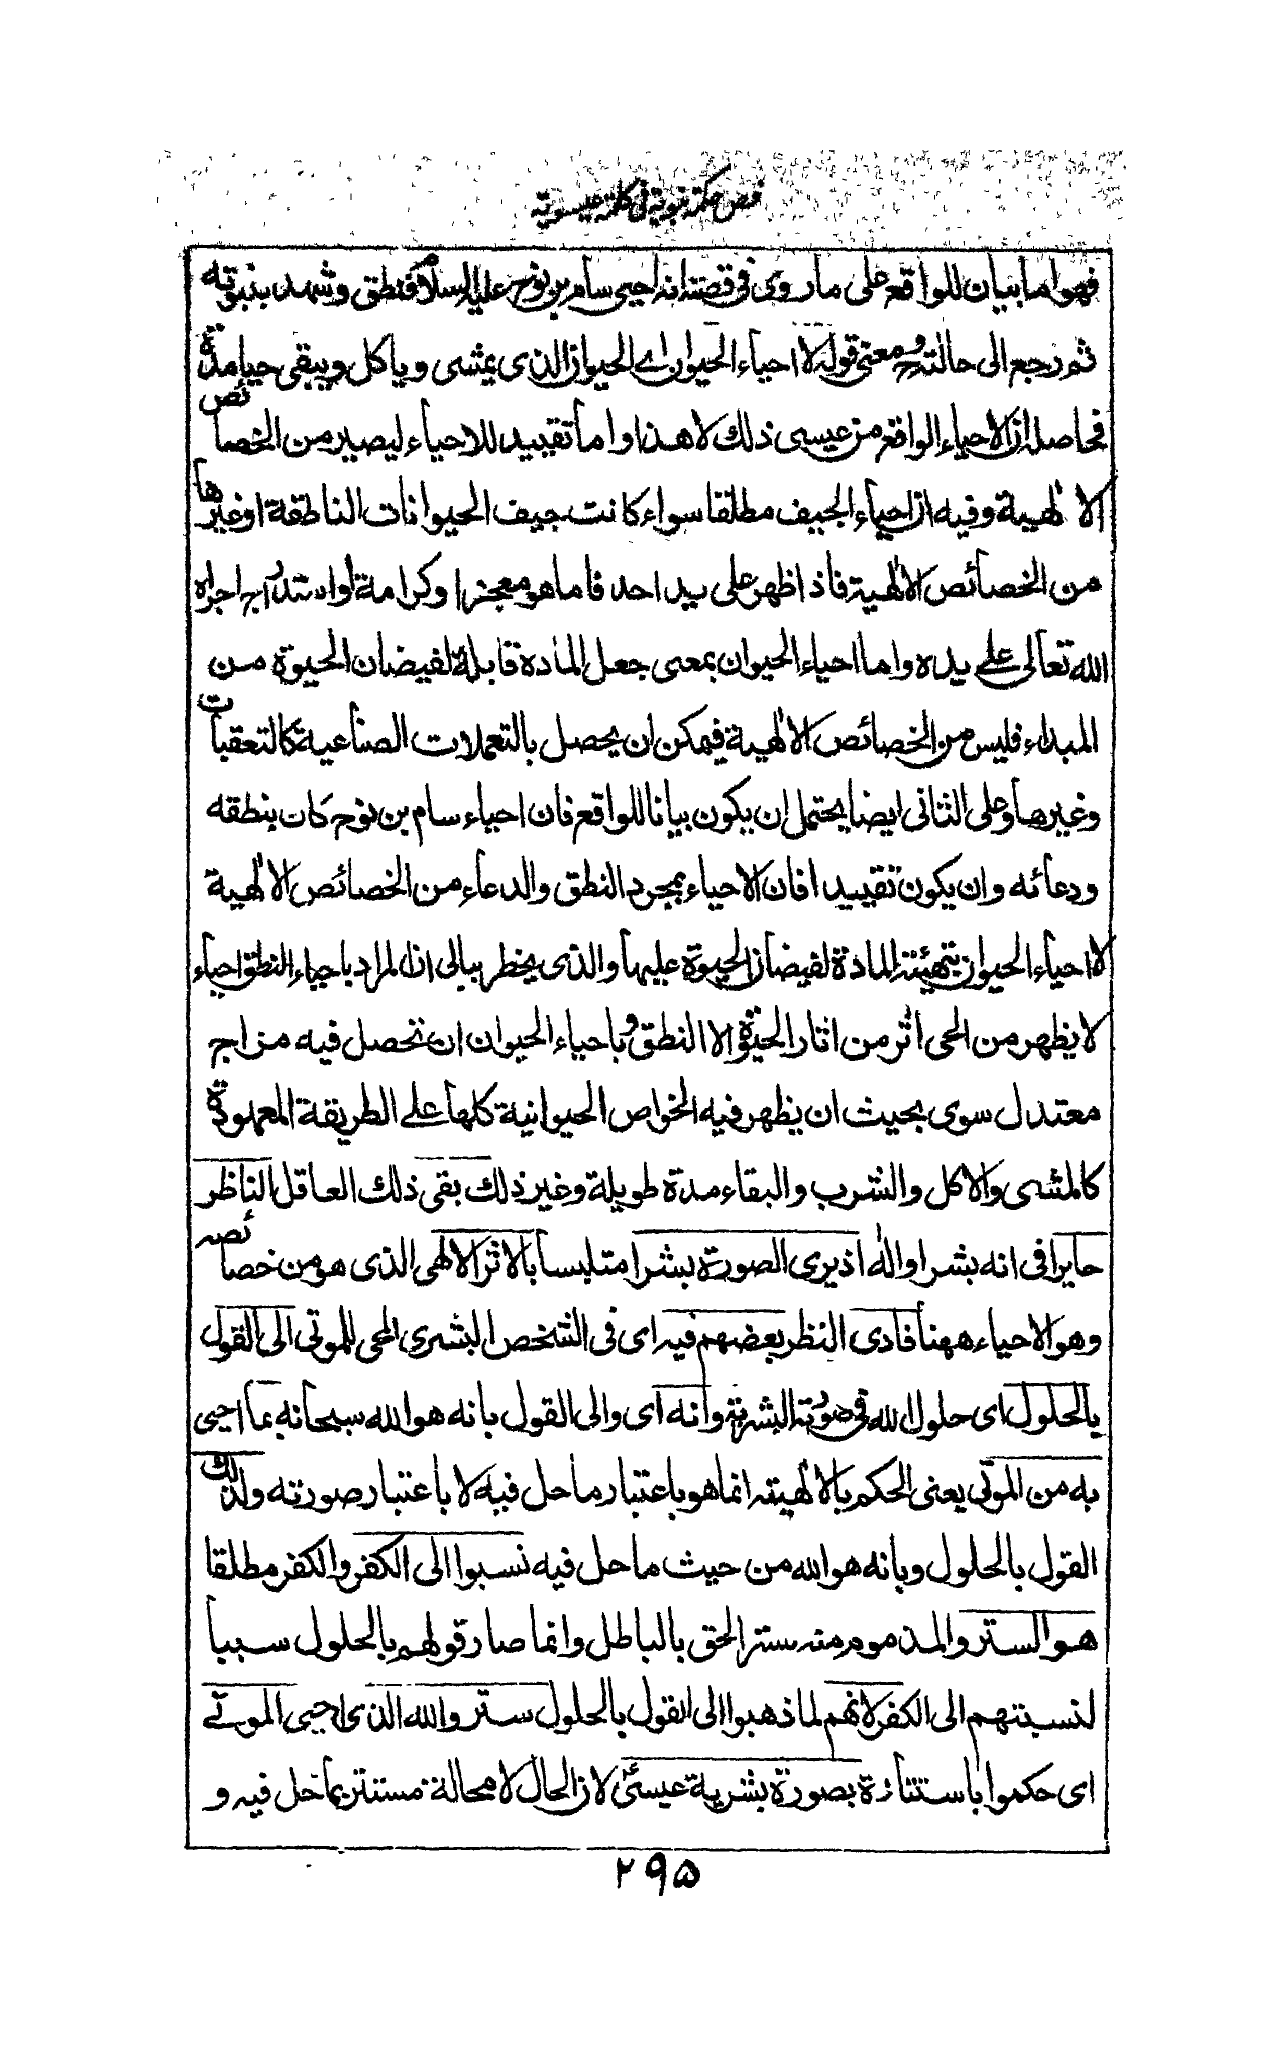 فص حكمة نبوية في كلمة عيسوية
فهو اما بيان للواقع على ما روى في قصته انه احيى سام بن نوح عليه السلام فنطق وشهد بنبوته
ثم رجع الى حالته ومعنى قوله لا احياء الحيوان اے الحيوان الذى يمشى وياكل ويبقى حيا مدة
فحاصله ان الاحياء الواقع من عيسى ذلك لا هذا واما تقييد للاحياء ليصير من الخصائص
الالٰهية وفيه ان احياء الجيف مطلقا سواء كانت جيف الحيوانات الناطقة او غيرها
من الخصائص الالٰهية فاذا ظهر على يد احد فاما هو معجز او كرامة او استدراج اجراه
الله تعالى علے يده واما احياء الحيوان بمعنى جعل المادة قابلة لفيضان الحيوة من
المبداء فليس من الخصائص الالٰهية فيمكن ان يحصل بالتعملات الصناعية كالتعفينات
وغيرها وعلى الثانى ايضا يحتمل ان يكون بيانا للواقع فان احياء سام بن نوح كان بنطقه
ودعائه وان يكون تقييدا فان الاحياء بمجرد النطق والدعاء من الخصائص الالٰهية
لا احياء الحيوان بتهيئة المادة لفيضان الحيوة عليها والذى يخطر ببالى ان المراد باحياء النطق احياء
لا يظهر من الحى اثر من اثار الحيوة الا النطق وباحياء الحيوان ان تحصل فيه مزاج
معتدل سوى بحيث ان يظهر فيه الخواص الحيوانية كلها علے الطريقة المعهودة
كالمشى والاكل والشرب والبقاء مدة طويلة وغير ذلك بقى ذلك العاقل الناظر
حايرا فى انه بشر او اله اذ يرى الصورة بشرا متلبسا بالاثر الالٰهى الذى هو من خصائصه
وهو الاحياء ههنا فادى النظر بعضهم فيه اى فى الشخص البشرى المحى للموتى الى القول
بالحلول اى حلول الله فى صورته البشرية وانه اى والى القول بانه هو الله سبحانه بما احيى
به من الموتى يعنى الحكم بالالٰهيته انما هو باعتبار ما حل فيه لا باعتبار صورته ولذلك
القول بالحلول وبانه هو الله من حيث ما حل فيه نسبوا الى الكفر والكفر مطلقا
هو الستر والمذموم منه ستر الحق بالباطل وانما صار قولهم بالحلول سببا
لنسبتهم الى الكفر لانهم لما ذهبوا الى القول بالحلول ستروا الله الذى احيى الموتے
اى حكموا باستتاره بصورة بشرية عيسىٰ لان الحال لا محالة مستتر بما حل فيه و
۲۹۵